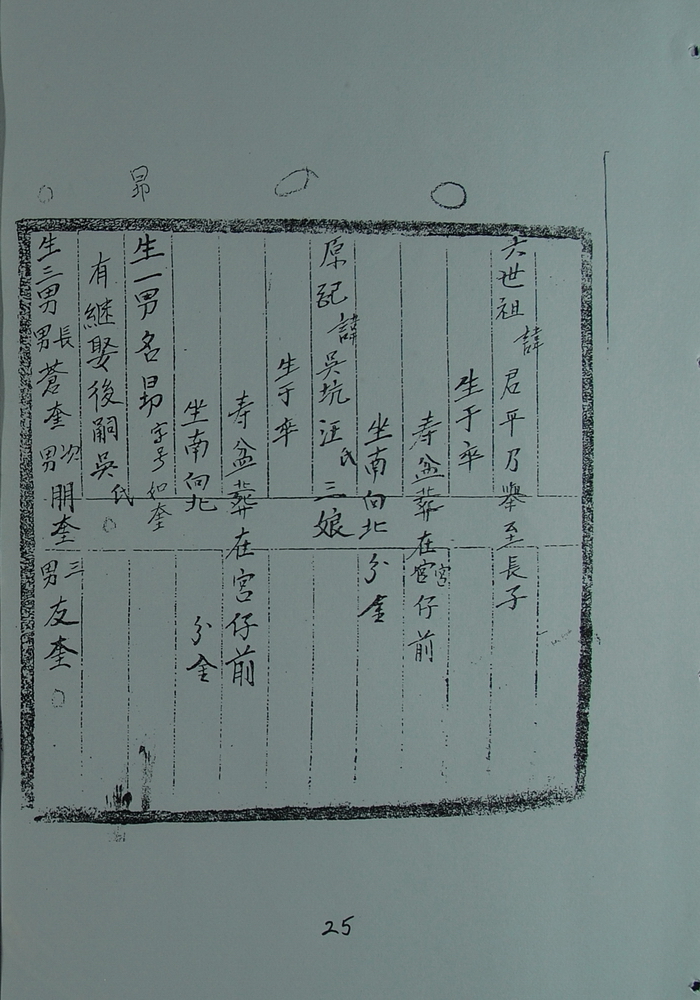 昴
六世祖諱君平乃舉至長子
生于卒
寿盆葬在宮宮仔前
坐南向北分金
原記諱吳坑汪氏三娘
生于卒
寿盆葬在宮仔前
坐南向北 分金
生一男名昴字号如奎
有継娶後嗣吳氏
生三男長男蒼奎次男朋奎三男友奎
25